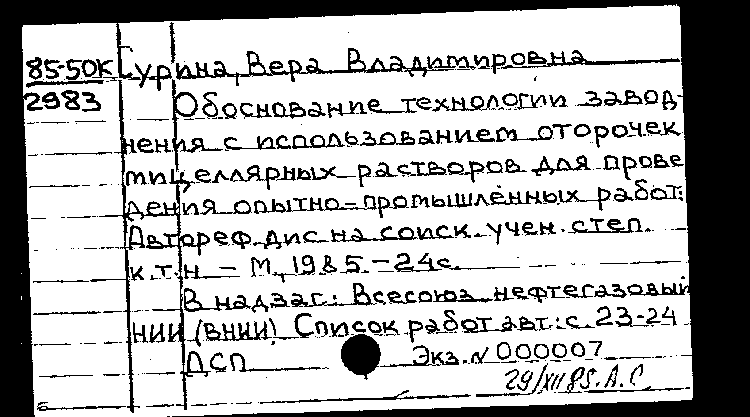 85-50К Сурина, Вера Владимировна
2983 Обоснование технологии завод-
нения с использованием оторочек
мицеллярных растворов для прове
дения опытно-промышленных работ:
Автореф. дис на соиск. учен. степ.
к.т.н - М., 1985. - 24с.
В надзаг: Всесоюз. нефтегазовый
НИИ (ВНИИ) Список работ авт.: с. 23-24
ДСП Экз. N 000007
29/XII 85. А.С